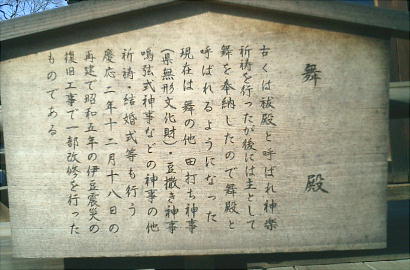 舞殿
古くは祓殿と呼ばれ神楽
祈祷を行ったが後には主として
舞を奉納したので舞殿と
呼ばれるようになった
現在は舞の他田打ち神事
(県無形文化財)・豆撒き神事
鳴弦式神事などの神事の他
祈祷・結婚式等も行う
慶応二年十二月十八日の
再建で昭和五年の伊豆震災の
復旧工事で一部改修を行った
ものである